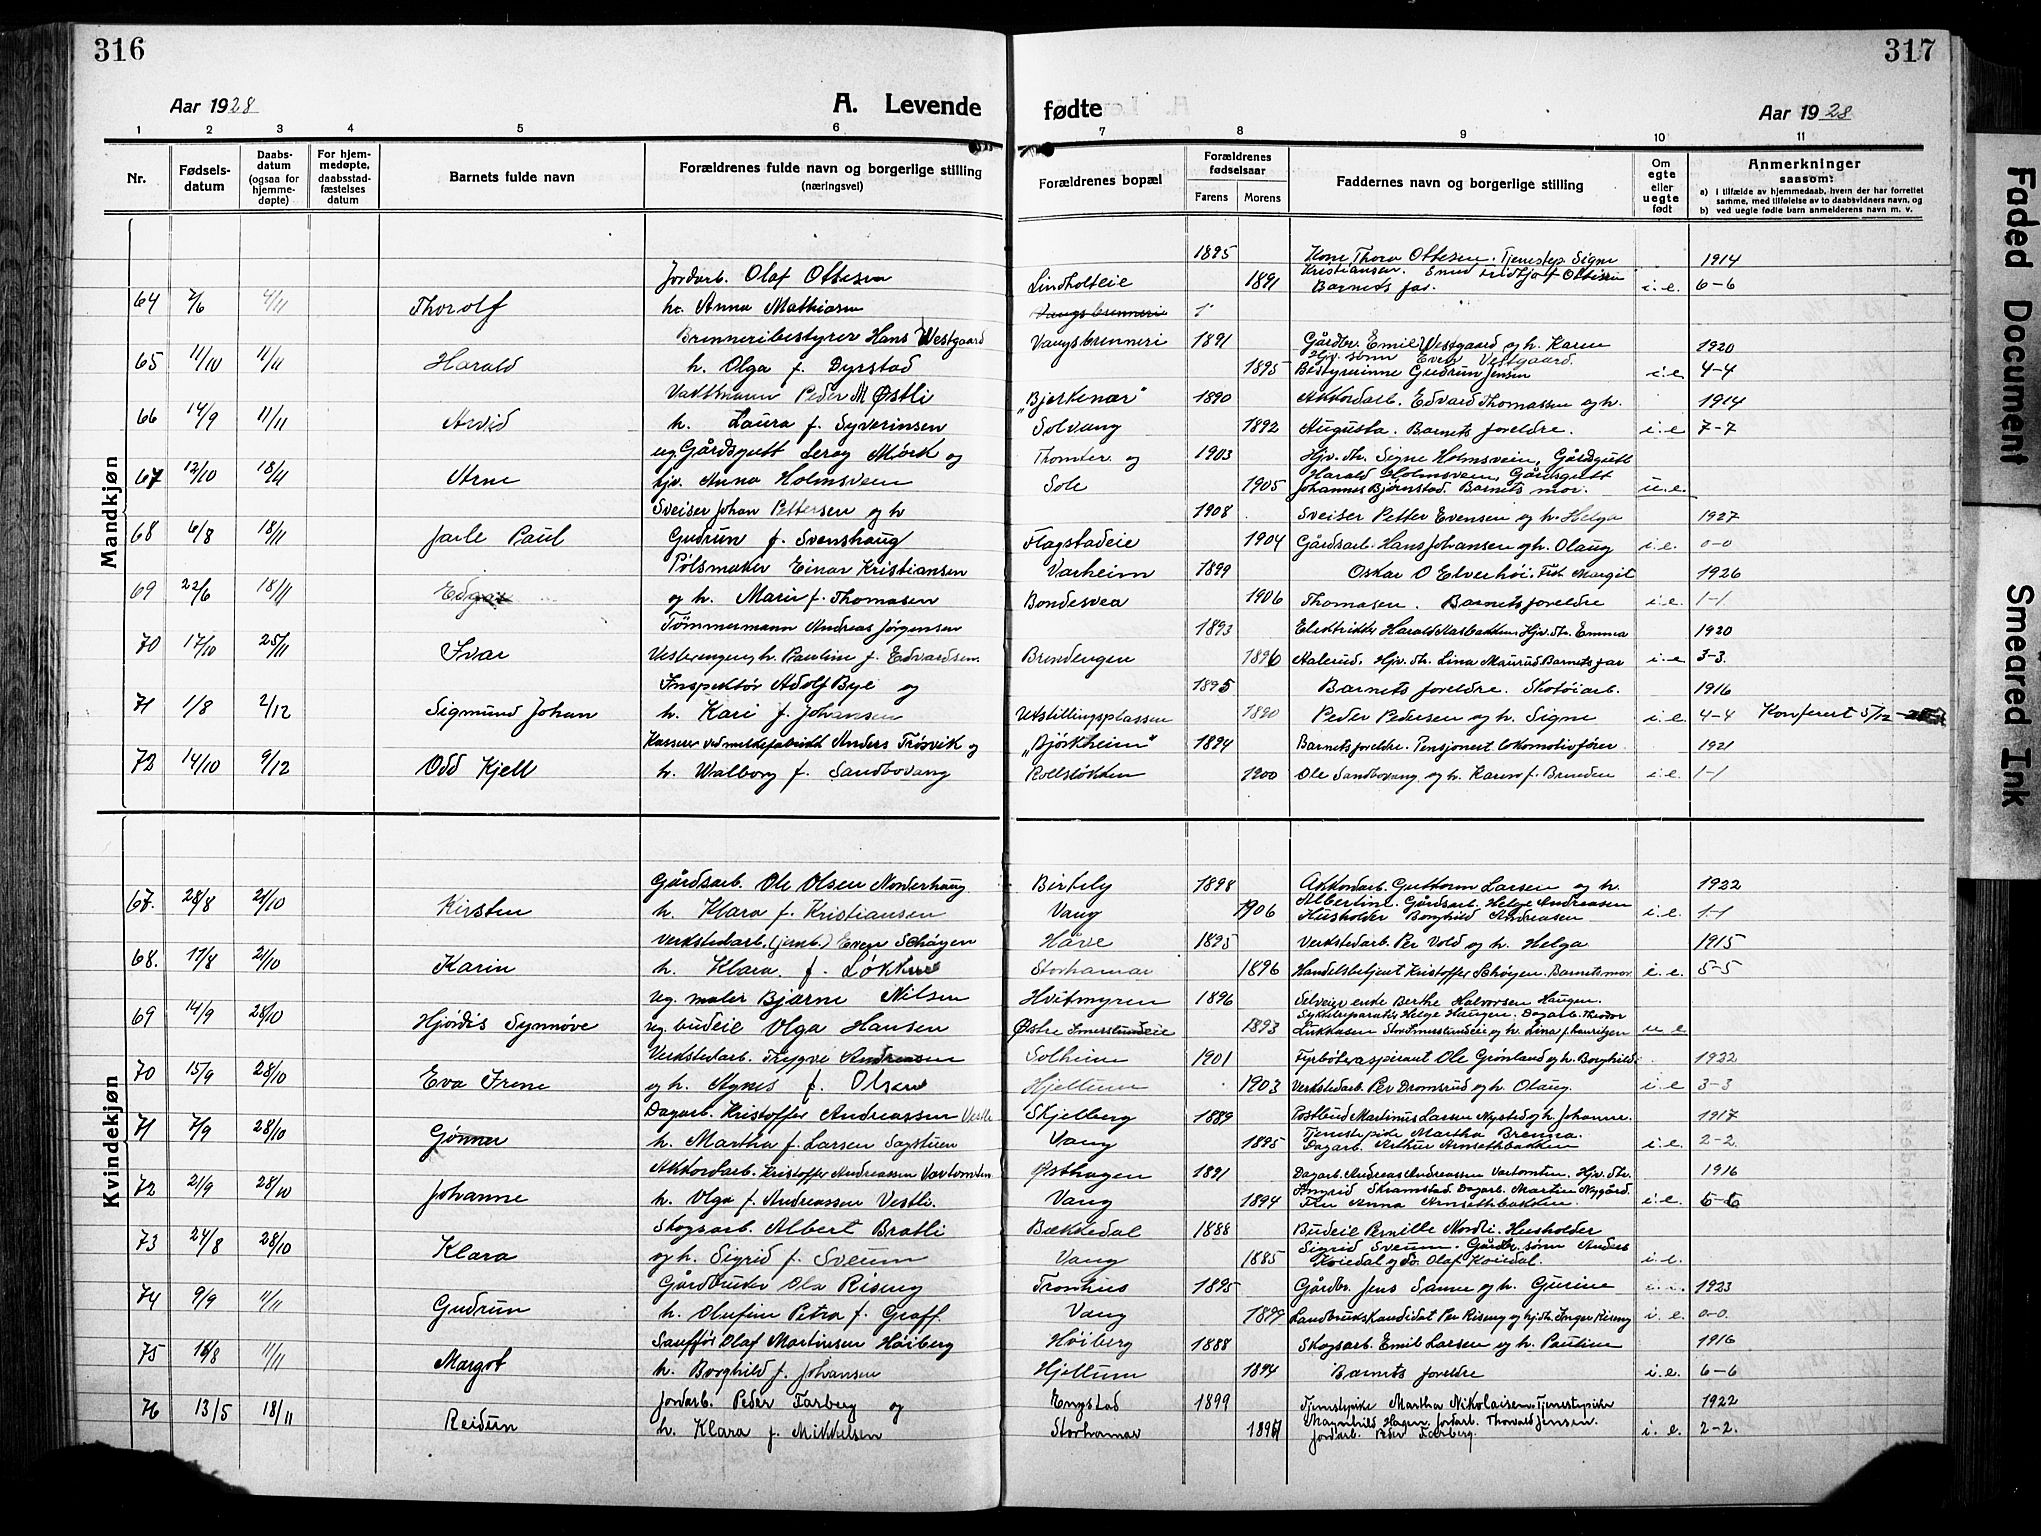 316
317
Aar 1928
A. Levende
fødte
Aar 1928
1 2 3 4 5 6 7 8 9 10 11
Nr.
Fødsels-
datum
Daabs-
datum
(ogsaa for
hjemme-
døpte)
For hjem-
medøpte,
daabsstad-
fæstelses
datum
Barnets fulde navn
Forældrenes fulde navn og borgerlige stilling
(næringsvei)
Forældrenes bopæl
Forældrenes
fødselsaar
Farens Morens
Faddernes navn og borgerlige stilling
Om
egte
eller
uegte
født
Anmerkninger
saasom:
a) i tilfælde av hjemmedaab, hvem der har forrettet
samme, med tilføielse av to daabsvidners navn, og
b) ved uegte fødte barn anmelderens navn m. v.
Mandkjøn
Jordarb. Olaf Ottesen 1895 Kone Thora Ottesen. Tjenestep. Signe 1914
64 2/6 4/11 Thorolf h. Anna Mathiasen Lindholteie 1891 Kristiansen. Ottesen Barnets far. i.e. 6-6
Vangsbrenneri
Brenneribestyrer Hans Westgaard Vangsbrenneri 1891 Gårdbr. Emil Westgaard og h. Karen 1920
65 11/10 11/11 Harald h. Olga f. Dyrstad 1895 Hjv. sønn Even Vestgaard. Bestyrerinne Gudrun Jensen i.e. 4-4
Vaktmann Peder M Østli "Bjerkenær" 1890 Akkordarb. Edvard Thomassen og h. 1914
66 14/9 11/11 Arvid h. Laura f. Syverinsen Solvang 1892 Augusta. Barnets foreldre. i.e. 7-7
ug. Gårdsgutt Mørk og Thomter og 1903 Hjv. dtr. Signe Holmsveen, Gårdsgutt
67 12/10 18/11 Arne hjv. Anna Holmsveen Sole 1905 Harald Holmsveen, Gårdsgutt Johannes Bjørnstad. Barnets mor. u.e.
Sveiser Johan Pettersen og h 1908 Sveiser Petter Evensen og h. Helga 1927
68 6/8 18/11 Jarle Paul Gudrun f. Svenshaug Flagstadeie 1904 Gårdsarb. Hans Johansen og h. Olaug i.e. 0-0
Pølsmaker Einar Kristiansen Varheim 1899 Oskar O Elverhøi. Frk. Margit 1926
69 22/6 18/11 Edgar og h. Marie f. Thomasen Bondesvea 1906 Thomasen. Barnets foreldre i.e. 1-1
Tømmermann Andreas Jørgensen 1893 Harald Kasbakken, Hjv. dtr. Emma 1920
70 17/10 25/11 Ivar Vesterengen og h. Pauline f. Edvardsen. Brendengen 1896 Aalerud. Hjv. dtr. Lina Maurud. Barnets far i.e. 3-3.
Inspektør Adolf Bye og 1895 Barnets foreldre. Skotøiarb. 1916
71 1/8 2/12 Sigmund Johan h. Kari f. Johansen Utstillingsplassen 1890 Peder Pedersen og h. Signe i.e. 4-4 Konferert 5/12
Kasserer ved melkefabrikk Anders Trøsvik og "Bjørkheim" 1894 Barnets foreldre. Pensjonert lokomotivfører 1921
72 14/10 9/12 Odd Kjell h. Walborg f. Sandbovang Rollsløkken 1900 Ole Sandbovang og h. Karen f. Brenden i.e. 1-1
Kvindekjøn
Gårdsarb. Ole Olsen Norderhaug Birkely 1898 Akkordarb. Guttorm Larsen og h. 1922
67. 28/8 21/10 Kirsten h. Klara f. Kristiansen Vang 1906 Albertine. Gårdsarb. Helge Andreasen Husholder Borghild Andreasen i.e. 1-1
Verkstedarb. (jernb.) Even Schøyen Håve 1895 Verkstedarb. Per Vold og h. Helga 1915
68. 17/8 21/10 Karin h. Klara f. Løkken Storhamar 1896 Handelsbetjent Kristoffer Schøyen. Barnets mor i.e. 5-5
Ug. maler Bjarne Nilsen Hvitmyren 1896 Selveierenke Berthe Halvorsen Haugen.
69 14/9 28/10 Hjørdis Synnøve ug. budeie Olga Hansen Østre Smerslundeie 1893 Sykkelreparatør Helge Haugen. Dagarb. Theodor Lukkasen og h. Lina f. Lauritzen u.e
Verkstedarb. Trygve Andreasen Solheim 1901 Fyrbøteraspirant Ole Grønland og h. Borghild 1922
70 15/9 28/10 Eva Irene og h. Agnes f. Olsen Hjellum 1903 Verkstedarb. Per Dromsrud og h. Olaug. i.e 3-3
Dagarb. Kristoffer Andreassen Vestli Skjelberg 1889 Postbud Martinus Larsen Nysted og h. Johanne. 1917
71 7/9 28/10 Gunnar h. Martha f. Larsen Sagstuen Vang 1895 Tjenestepike Martha Brenna. Dagarb. Arthur Arnsethbakken i.e. 2-2.
Akkordarb. Kristoffer Andreassen Vartomten Østhagen 1891 Dagarb. Andreas Andreassen Vartomten. Hjv. dtr. 1916
72 21/9 28/10 Johanne h. Olga f. Andreassen Vestli. Vang 1894 Ingrid Skramstad. Dagarb. Martin Nygård. Fru Anna Arnsethbakken. i.e. 6-6
Skogsarb. Albert Bratli Bækkedal 1888 Budeie Pernille Nordli. Husholder
73 24/8 28/10 Klara og h. Sigrid f. Sveum Vang 1885 Sigrid Sveum. Gårdbr. sønn Anders Kvisdal og do. Olaf Kvisdal. i.e.
Gårdbruker Ola Riseng Tronhus 1895 Gårdbr. Jens Sanne og h. Gurine 1923
74 9/9 11/11 Gudrun h. Olufine Petra f. Graff. Vang 1899 Landbrukskandidat Per Riseng og hj.dtr. Inger Riseng i.e. 0-0.
Sauffør Olaf Martinsen Høiberg Høiberg 1888 Skogsarb. Emil Larsen og h. Pauline 1916
75 16/8 11/11 Margot h. Borghild f. Johansen Hjellum 1894 Barnets foreldre i.e. 6-6
Jordarb. Peder Farberg og Engstad 1899 Tjenestepike Martha Nikolaisen. Tjenestepike 1922
76 13/5 18/11 Reidun h. Klara f. Mikkelsen Storhamar 1896 Magnhild Hagen. Jordarb. Thorvald Jensen. Jordarb. Peder Farberg. i.e. 2-2.
Faded Document
Smeared Ink